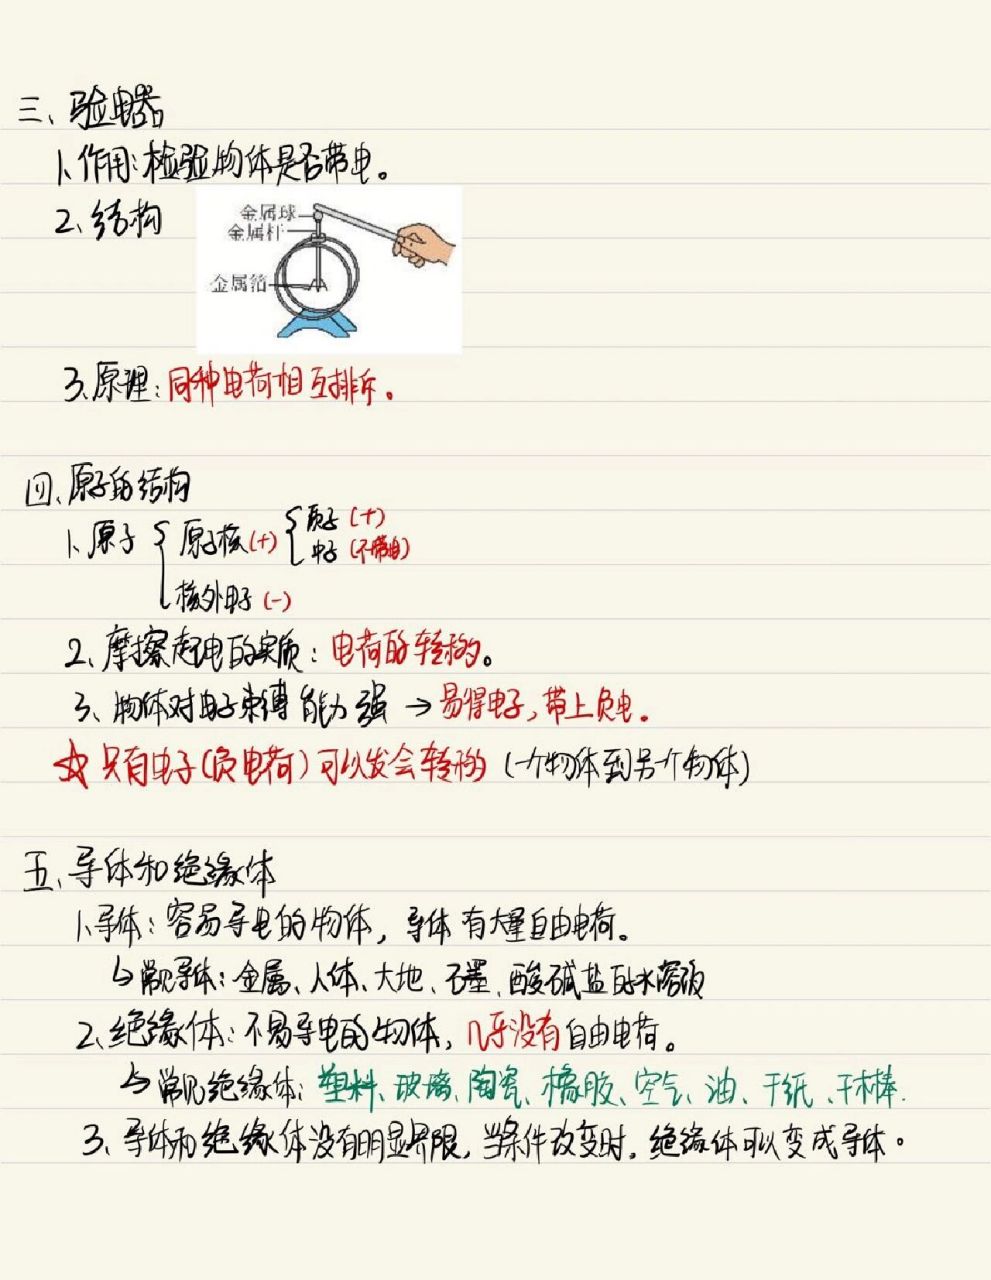 三、验电器
1、作用:检验物体是否带电。
2、结构
金属球
金属杆
金属箔
3、原理:同种电荷相互排斥。
四、原子的结构
1、原子 { 原子核(+) { 质子(+)
中子(不带电)
核外电子(-)
2、摩擦起电的实质:电荷的转移。
3、物体对电子束缚能力强→易得电子,带上负电。
☆ 只有电子(负电荷)可以发会转移(一个物体到另一个物体)
五、导体和绝缘体
1、导体:容易导电的物体,导体有大量自由电荷。
↳常见导体:金属、人体、大地、石墨、酸碱盐的水溶液
2、绝缘体:不易导电的物体,几乎没有自由电荷。
↳常见绝缘体:塑料、玻璃、陶瓷、橡胶、空气、油、干纸、干木棒.
3、导体和绝缘体没有明显界限,当条件改变时,绝缘体可以变成导体。